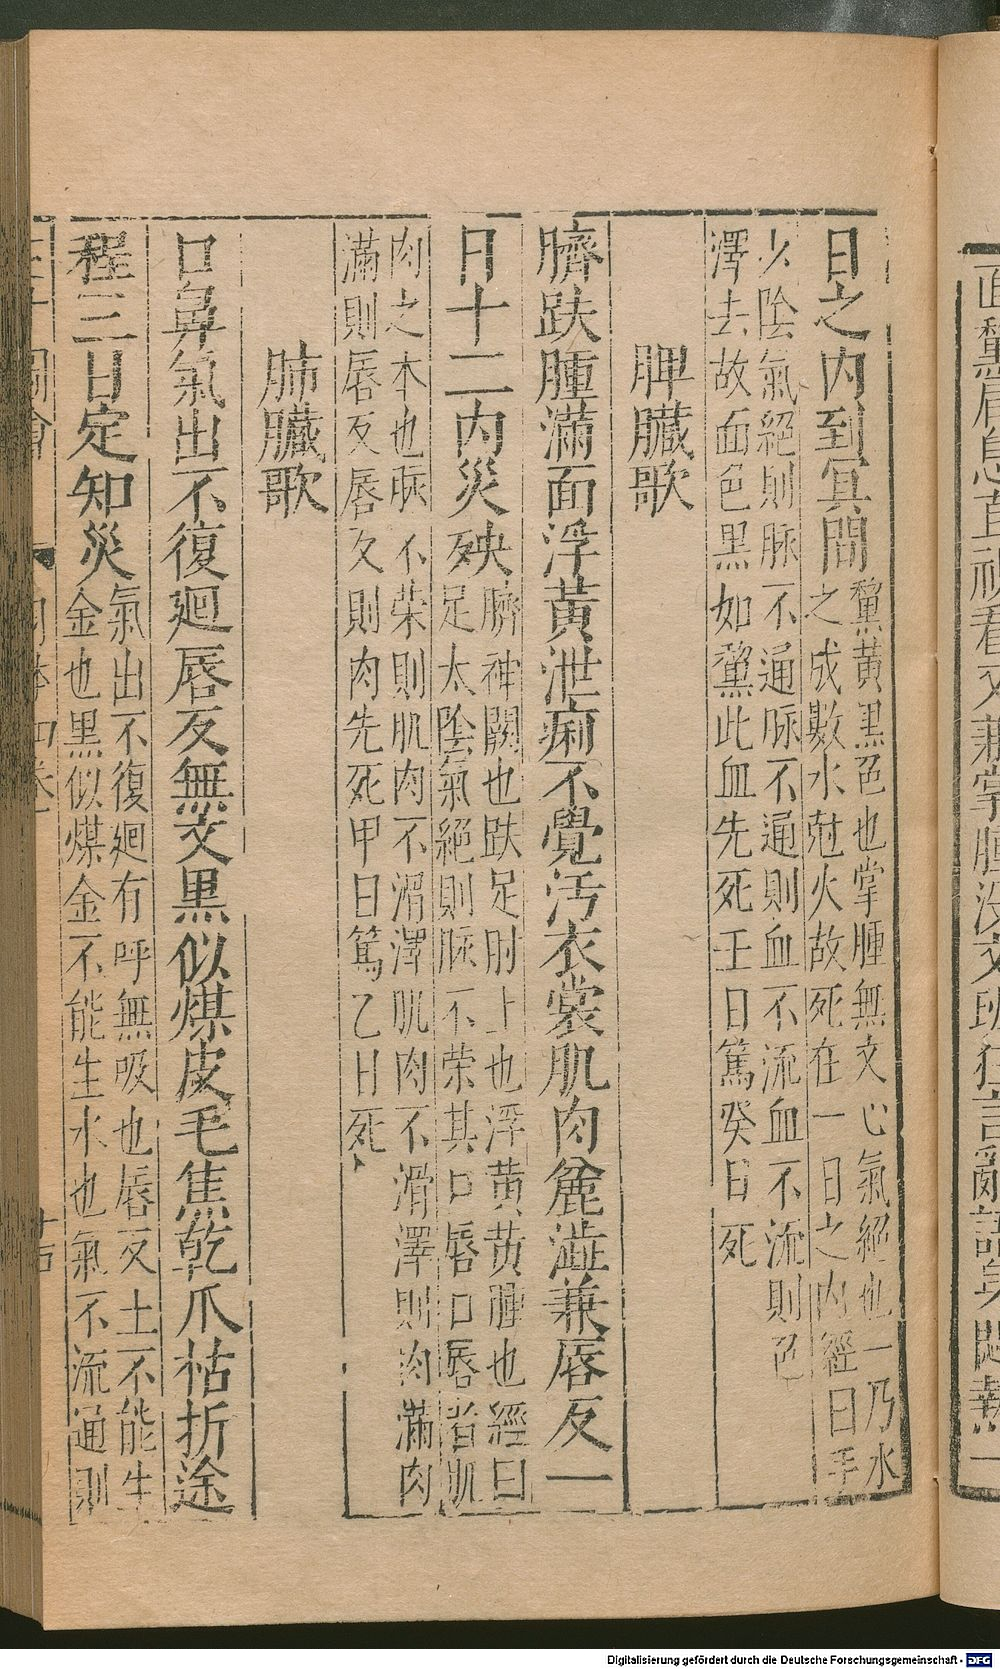 日之內到冥間
黧黃黑色也掌腫無文心氣絕也一乃水
之成數水尅火故死在一日之內經曰手
少陰氣絕則脉不通脉不通則血不流血不流則色
澤去故面色黑如黧此血先死壬日篤癸日死
脾臟歌
臍趺腫滿面浮黃泄痢不覺汚衣裳肌肉麄澁兼唇反一
日十二內災殃
臍神闕也趺足肘上也浮黃黃腫也經曰
足太陰氣絕則脉不荣其口唇口唇者肌
肉之本也脉不荣則肌肉不滑澤肌肉不滑澤則肉滿肉
滿則唇反唇反則肉先死甲日篤乙日死
肺臟歌
口鼻氣出不復廻唇反無文黑似煤皮毛焦乾爪枯折途
程三日定知災
氣出不復廻有呼無吸也唇反土不能生
金也黑似煤金不能生水也氣不流通則
面黧肩息直視看又兼掌腫沒文班狂言亂語身悶熱一
Digitalisierung gefördert durch die Deutsche Forschungsgemeinschaft - DFG